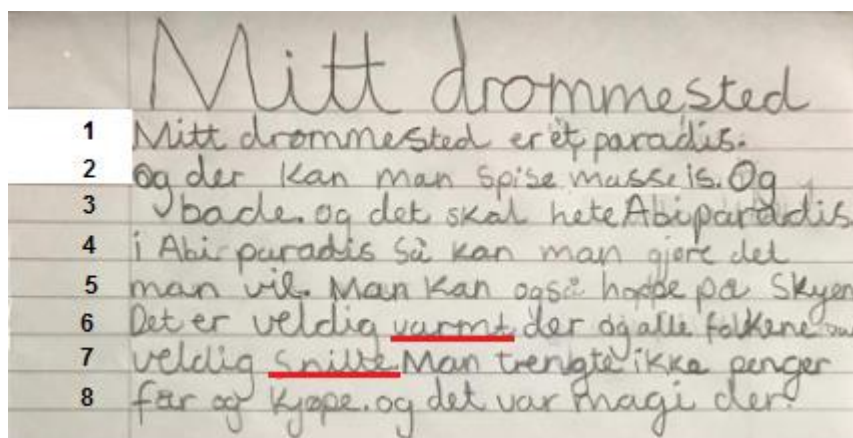 Mitt drømmested
1 Mitt drømmested er et paradis.
2 Og der kan man spise masse is. Og
3 bade. og det skal hete Abiparadis.
4 i Abiparadis så kan man gjøre det
5 man vil. Man kan også hoppe på skyen
6 Det er veldig varmt der og alle folkene
7 veldig snille. Man trengte ikke penger
8 før og kjøpe. og det var magi der.